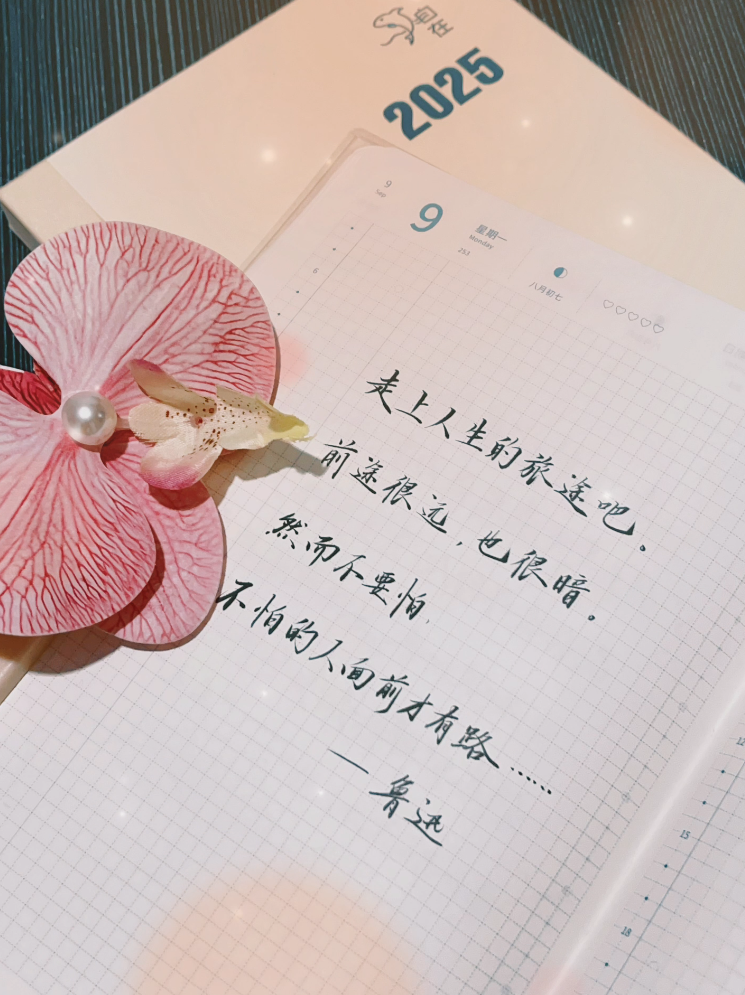 句在
2025
9
Sep
9
星期一
Monday
253
八月初七
6
走上人生的旅途吧。
前途很远，也很暗。
然而不要怕.
不怕的人面前才有路……
— 鲁迅
12
15
18